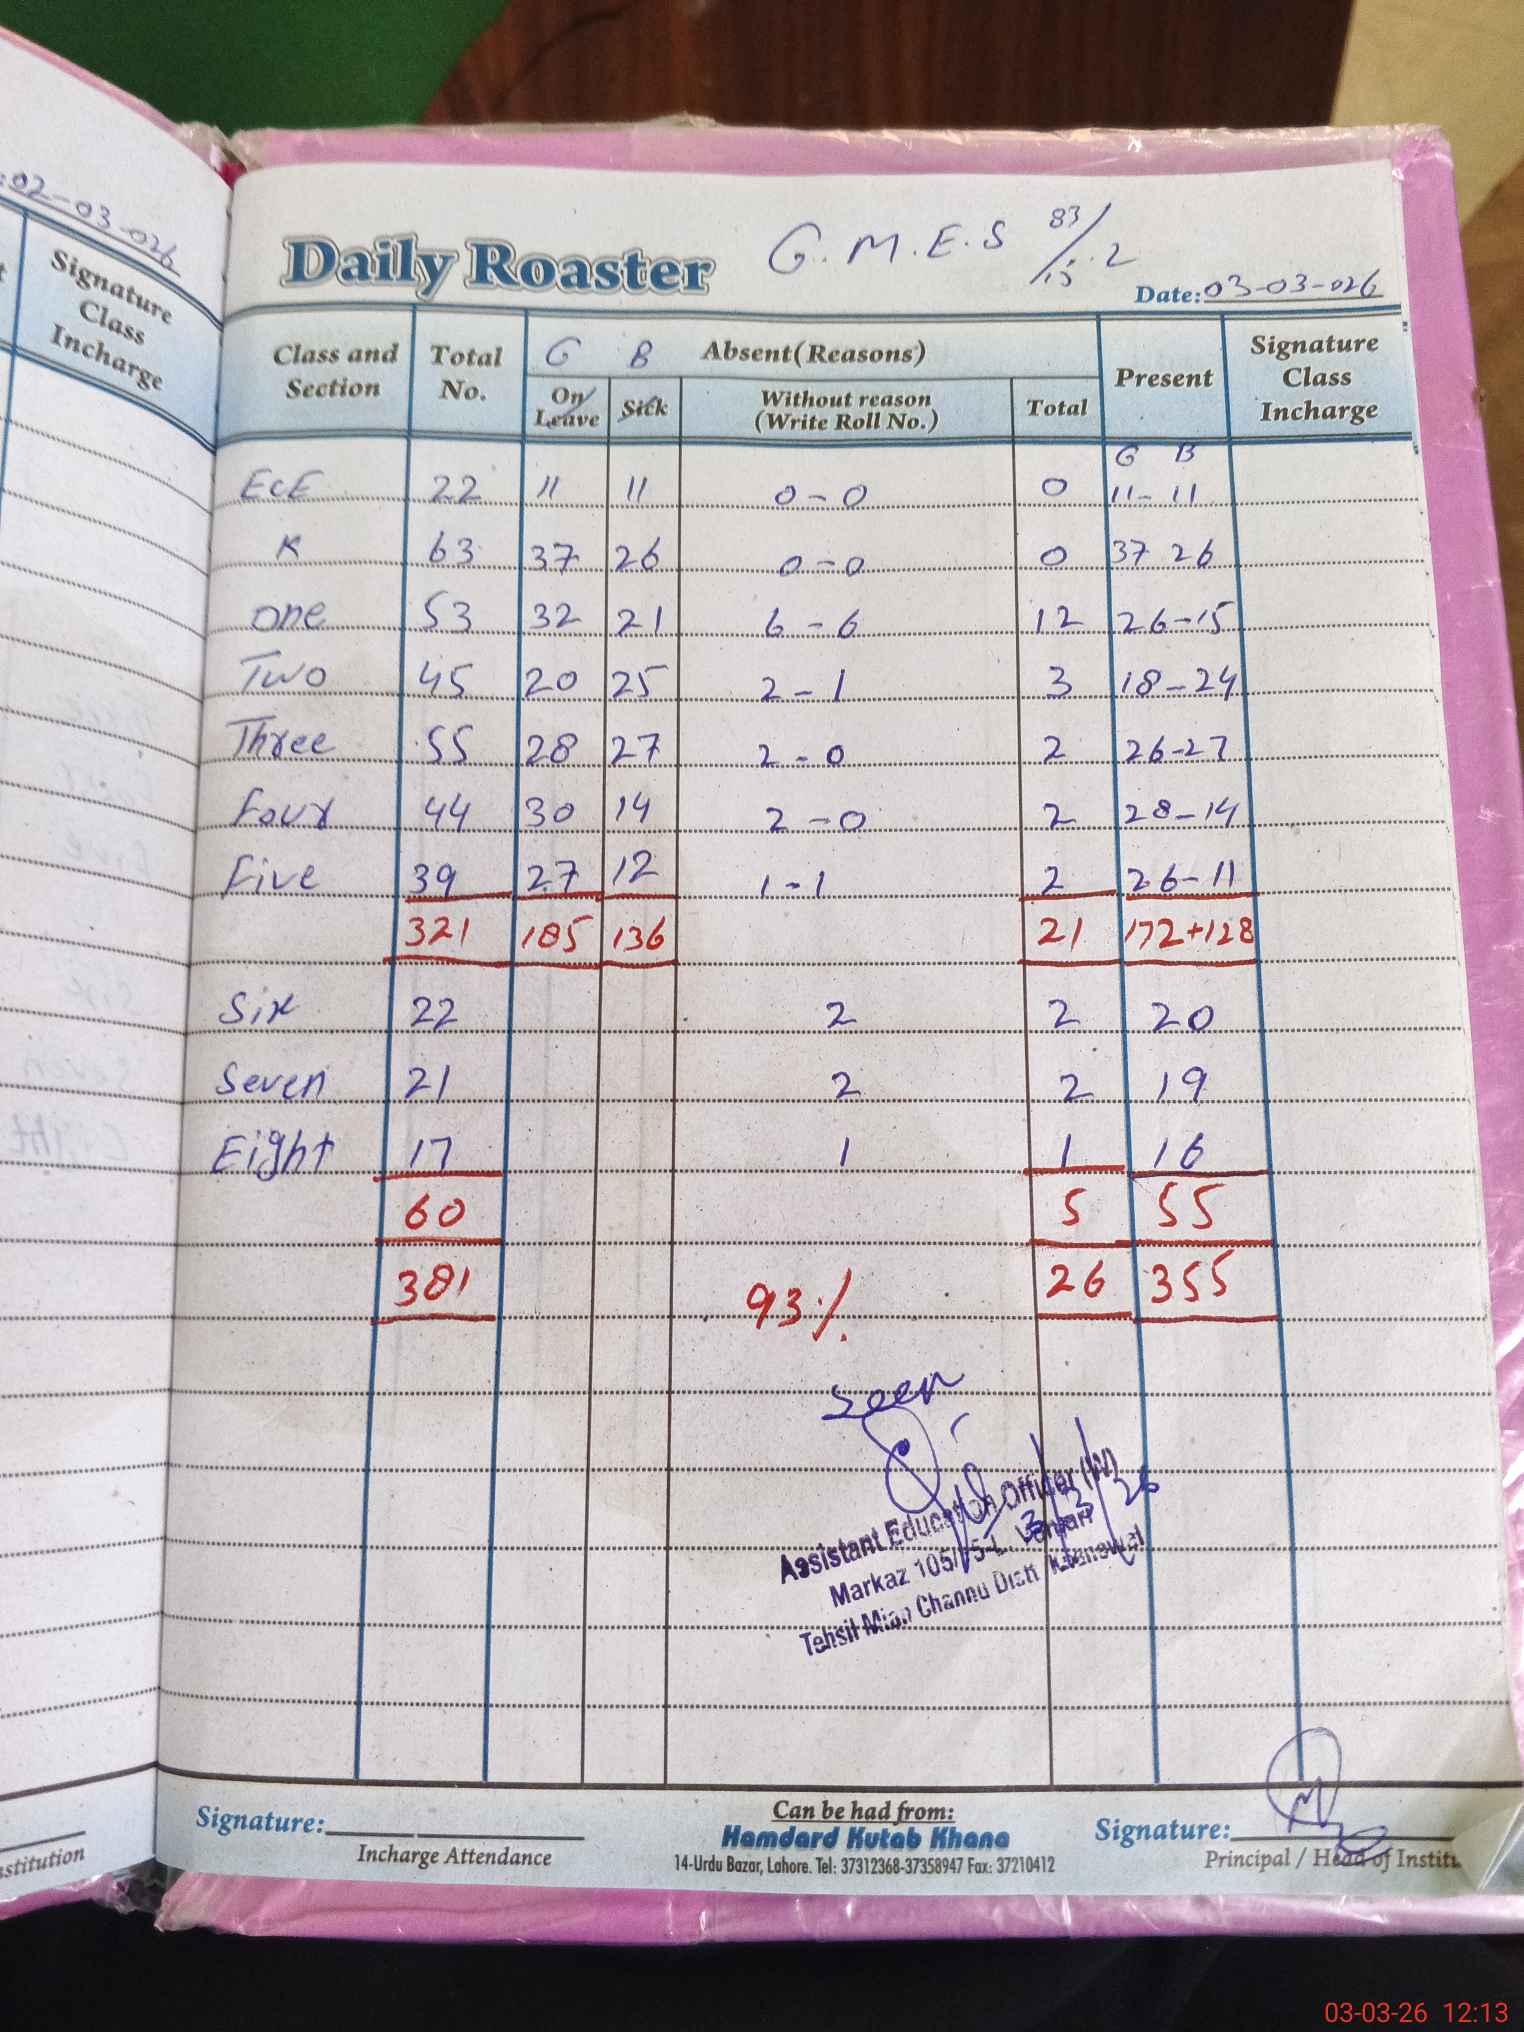 :02-03-026
Signature
Class
Incharge
stitution
Daily Roaster
G.M.E.S 83/15.2
Date: 03-03-026
Class and Section
Total No.
G B
Absent(Reasons)
On Leave
Sick
Without reason
(Write Roll No.)
Total
Present
Signature
Class
Incharge
G B
ECE 22 11 11 0-0 0 11-11
K 63 37 26 0-0 0 37 26
one 53 32 21 6-6 12 26-15
Two 45 20 25 2-1 3 18-24
Three 55 28 27 2-0 2 26-27
Four 44 30 14 2-0 2 28-14
Five 39 27 12 1-1 2 26-11
321 185 136 21 172+128
Six 22 2 2 20
Seven 21 2 2 19
Eight 17 1 1 16
60 5 55
381 93% 26 355
Seen
3/3/26
Assistant Education Officer (W)
Markaz 105/15-L
Tehsil Mian Channu Distt Khanewal
Signature:
Incharge Attendance
Can be had from:
Hamdard Kutab Khana
14-Urdu Bazar, Lahore. Tel: 37312368-37358947 Fax: 37210412
Signature:
Principal / Head of Institu
03-03-26 12:13